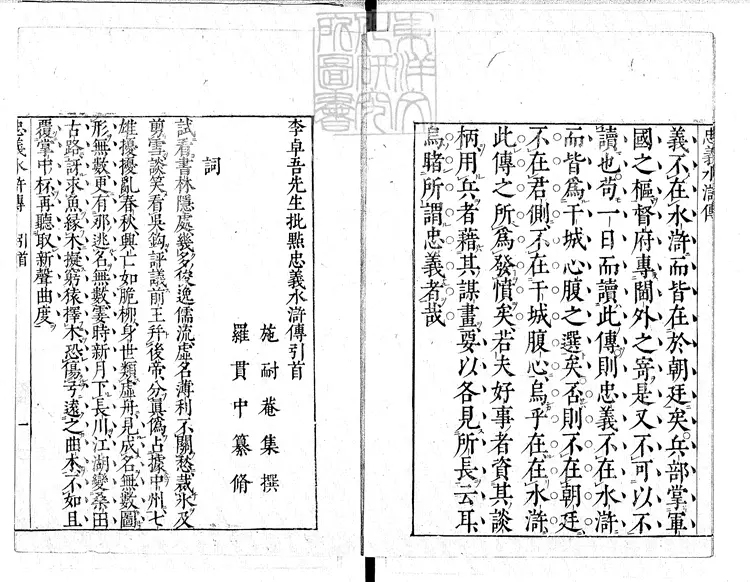 忠義水滸傳
義不在水滸而皆在於朝廷矣兵部掌軍
國之樞督府專閫外之寄是又不可以不
讀也苟一日而讀此傳則忠義不在水滸
而皆爲干城心腹之選矣否則不在朝廷
不在君側不在干城腹心烏乎在在水滸
此傳之所爲發憤矣若夫好事者資其談
柄用兵者藉其謀畫要以各見所長云耳
烏睹所謂忠義者哉
李卓吾先生批點忠義水滸傳引首
施耐菴集撰
羅貫中纂脩
詞
試看書林隱處幾多俊逸儒流虛名薄利不關愁裁冰及
剪雪談笑看吳鈎評議前王幷後帝分眞僞占據中州七
雄擾擾亂春秋興亡如脆柳身世類虛舟見成名無數圖
形無數更有那逃名無數霎時新月下長川江湖變桑田
古路訝求魚緣木擬窮猿擇木恐傷弓遠之曲木不如且
覆掌中杯再聽取新聲曲度
忠義水滸傳 引首 一